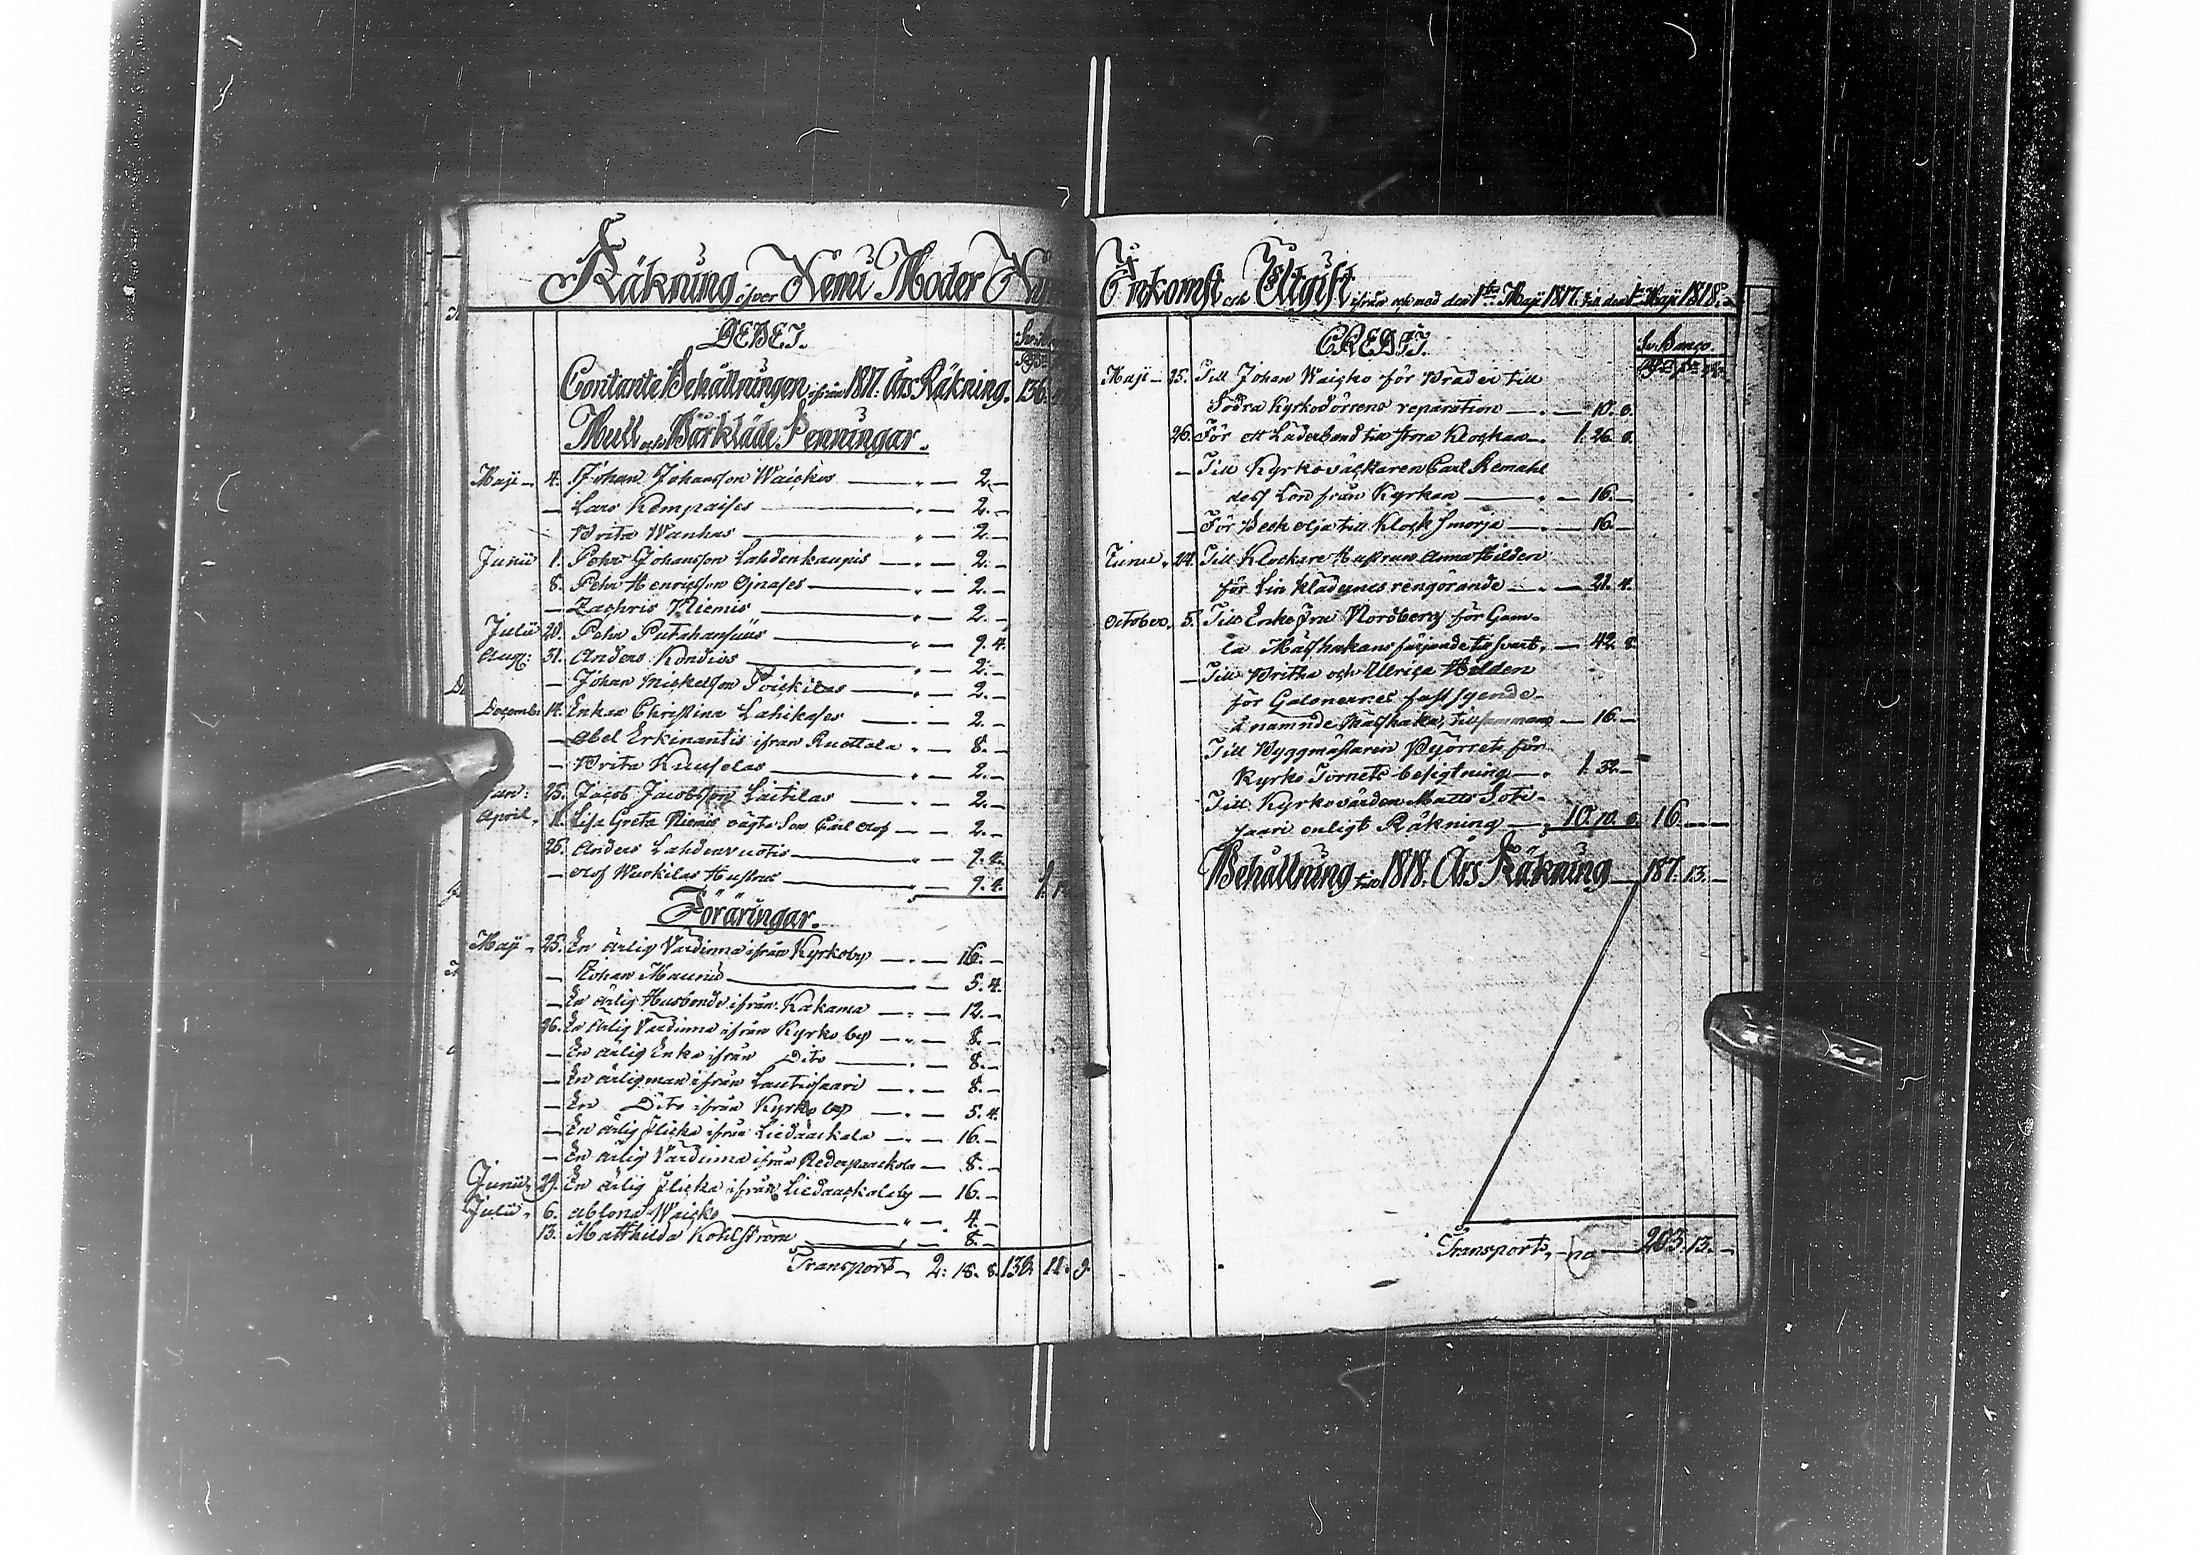 Räkning öfver Kemi Moder Ky
DEBET.
Contante Behållningen ifrån 1817. Års Räkning. 136.
Mull och Bårkläde Penningar.
Maji — 4. Johan Johansson Waickos — " — 2. —
— Lars Kempaises — " — 2. —
Brita Wanhas — " — 2. —
Junii 1. Pehr Johansson Lahdenkaupis — " — 2. —
8. Pehr Henricsson Ojnases — " — 2. —
— Zachris Niemis — " — 2. —
Julii 20. Pehr Putahansuus — " — 9. 4.
Aug: 31. Anders Kondios — " — 2. —
— Johan Mickelsson Poickilas — " — 2. —
Decemb. 14. Enkan Christina Lahikases — " — 2. —
— Abel Erkinantis ifrån Ruottala " — 8. —
— Brita Kuuselas — " — 2. —
Jan: 25. Jacob Jacobsson Laitilas — " — 2. —
April, 11. Lisa Greta Niemis oägta Son Carl Olof — — 2. —
25. Anders Lahdenvuotis — " — 9. 4.
— Olof Warkilas Hustru — " — 9. 4. 1.
Föräringar.
Maji " 25. En ärlig Värdinna ifrån Kyrkoby — " — 16. —
— Johan Maunu — " — 5. 4.
— En ärlig Husbonde ifrån Kakama — " — 12. —
26. En ärlig Värdinna ifrån Kyrko by — " — 8. —
— En ärlig Enka ifrån Dito — " — 8. —
— En ärlig man ifrån Lautiosaari — " — 8. —
— En Dito ifrån Kyrko by — " — 5. 4.
— En ärlig flicka ifrån Liedaackala — " — 16. —
— En ärlig Värdinna ifrån Rederpaackola — 8. —
Junii, 29. En ärlig flicka ifrån Liedaackalaby — 16. —
Julii " 6. Ablona Waicko — " — 4. —
13. Matthilda Kohlström — " — 8. —
Transport — 2: 18. 8. 138. 11. 9.
Inkomst och Utgift ifrån och med den 1sta Maji 1817. till den 1sta Maji 1818.
CREDIT.
Sv. Banco.
Maji — 25. Till Johan Waicko för Bräder till
Södra Kyrkodörrens reparation — " — 10. 8.
26. För ett Läderband till stora Klockan — " 1. 26. 8.
— Till Kyrkoväcktaren Carl Remahl
dess Lön från Kyrkan — " — 16. —
— För Beck olja till Klock smörja — " — 16. —
Junii " 24. Till Klockare Hustrun Anna Hilden
för Lin klädernes rengörande — " — 21. 4.
October, 5. Till Enke fru Nordberg för Gam-
la Mässhakans färgande till svart, — 42. 8.
— Till Britha och Ullrica Hilden
för Galonernes fastsyende
å nämnde Mässhaka, tillsammans — 16. —
Till Byggmästaren Bijörret för
Kyrko Tornets besigtning — " 1. 32. —
Till Kyrkovärden Matts Soti-
saari enligt Räkning — " 10. 10. 8. 16. — —
Behållning till 1818. Års Räkning — 187. 13. —
Transport, — 203. 13. —